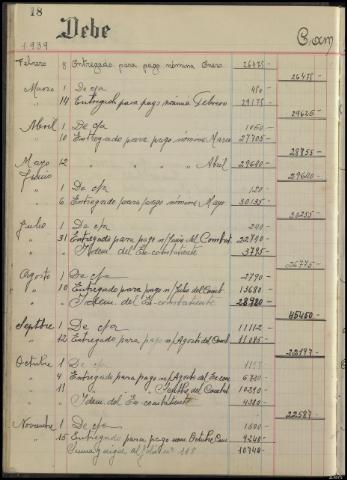 18
Debe
1.939
Febrero 8 Entregado para pago nómina Enero 26475-
26475-
Marzo 1 De c/a 450-
" 14 Entregado para pago nómina Febrero 29175-
29625-
Abril 1 De c/a 1050-
" 10 Entregado para pago nómina Marzo 27705-
28755-
Mayo 12 " " " " Abril 29680-
Junio 29680-
" 1 De c/a 120-
" 6 Entregado para pago nómina Mayo 30135-
30255-
Julio 1 De c/a 240-
" 31 Entregado para pago n/ Junio del Combat 22740-
" Idem. del Ex-combatiente 3795-
26775-
Agosto 1 De c/a 2790-
" 10 Entregado para pago n/ Julio del Comb 13680-
" Idem. del Ex-combatiente 28980-
45450-
Septbre 1 De c/a 11112-
" 12 Entregado para pago n/ Agosto del Comb 11685-
22797-
Octubre 1 De c/a
" 4 Entregado para pago n/ Agosto del Ex com 6720-
" 11 " " " Septbre del Combat 10290-
" Idem del Ex-combatiente 4380-
22587-
Noviembre 1 De c/a 1500-
" 15 Entregado para pago nom. Octubre 9240-
Suma y sigue al folio nº 10740-